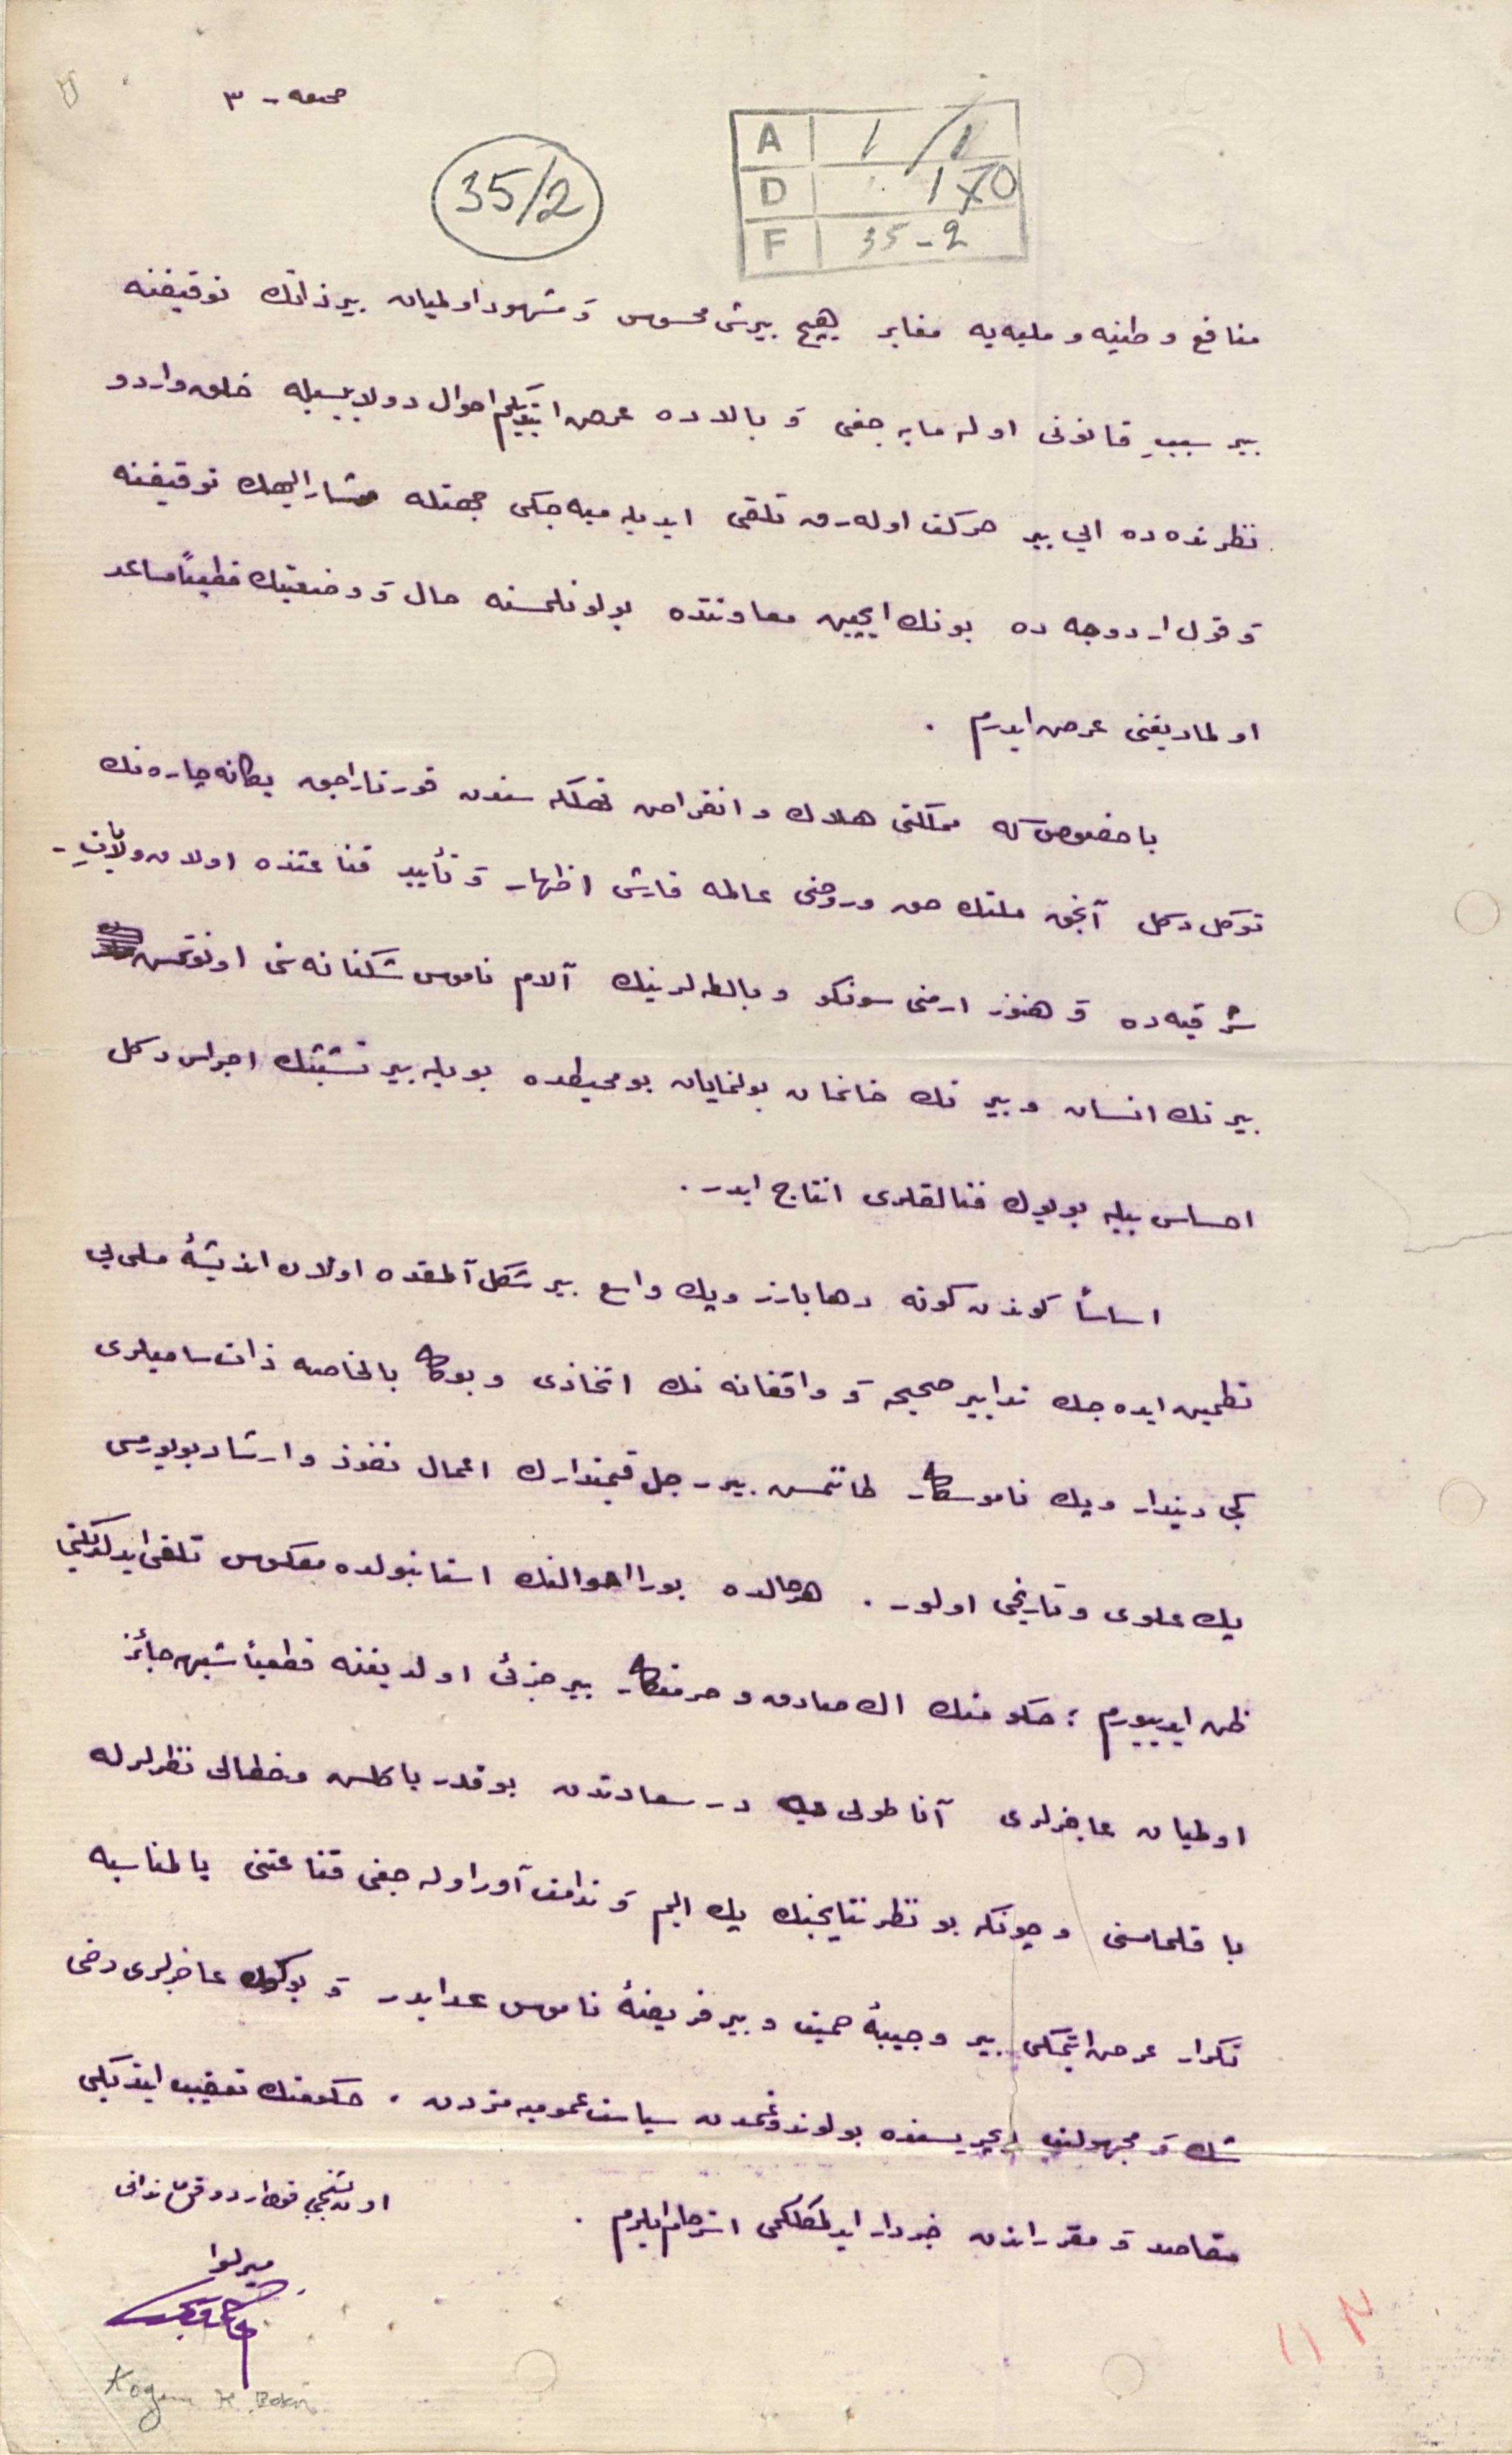 صحیفه - ٣
35/2
A 1/1
D 170
F 35-2
منافع وطنیه و ملیه یه مغایر هیچ بیر شی محسوس و مشهود اولمیان بیر ذاتك توقیفنه
بیر سببِ قانونی اوله مایه جغی و بالاده عرض ایتدیکم احوال دولاییسیله خلق و اردو
نظرنده ده ایی بیر حرکت اوله رق تلقی ایدیله میه جکی جهتله مشارالیهك توقیفنه
و قول اردوجه ده بونك ایچین معاونتده بولونلمسنه حال و وضعیتك قطعیاً مساعد
اولمادیغنی عرض ایدرم .
باخصوص که مملکتی هلاك و انقراض تهلکه سندن قورتاراجق یکانه چاره نك
توکل دکل آنجق ملتك حق و روحنی عالمه قارشی اظهار و تأیید قناعتنده اولان ولایاتِ -
شرقیه ده و هنوز ارمنی سونکو و بالطه لرینك آلام ناموس شکنانه سنی اونوتمش
بیر تك انسان و بیر تك خانمان بولنمایان بو محیطده بویله بیر تشبثك اجراسی دکل
احساسی بیله بویوك فنالقلری انتاج ایدر .
اساساً کوندن کونه دها بارز و پك واسع بیر شکل آلمقده اولان اندیشۀ ملی یی
تطمین ایده جك تدابیر صحیحه و واقفانه نك اتخاذی و بوکا بالخاصه ذات سامیلری
کبی دیندار و پك ناموسکار طانتمش بیر رجل قیمتدارك اعمال نفوذ و ارشاد بویورمسی
پك علوی و تاریخی اولور . هرحالده بورا احوالنك استانبولده معکوس تلقی ایدلدیکنی
ظن ایدییورم ؛ حکومتك اك صادق و حرمتکار بیر جزئی اولدیغنه قطعیاً شبهه جائز
اولمیان عاجزلری آناطولی یه در سعادتدن بو قدر یاکلش و خطالی نظرلرله
باقلمامسنی و چونکه بو نظر نتایجنك پك الیم و ندامت آور اوله جغی قناعتنی بالمناسبه
تکرار عرض ایتمکی بیر وجیبۀ حمیت و بیر فریضۀ ناموس عد ایدر و بوکون عاجزلری دخی
شك و مجهولیت ایچریسنده بولوندوغمدن سیاست عمومیه مزدن ، حکومتك تعقیب ایتدیکی
مقاصد و مقرراتدن خبردار ایدلمکلکمی استرحام ایلرم .
اون بشنجی قول اردو قوماندانی
میرلوا